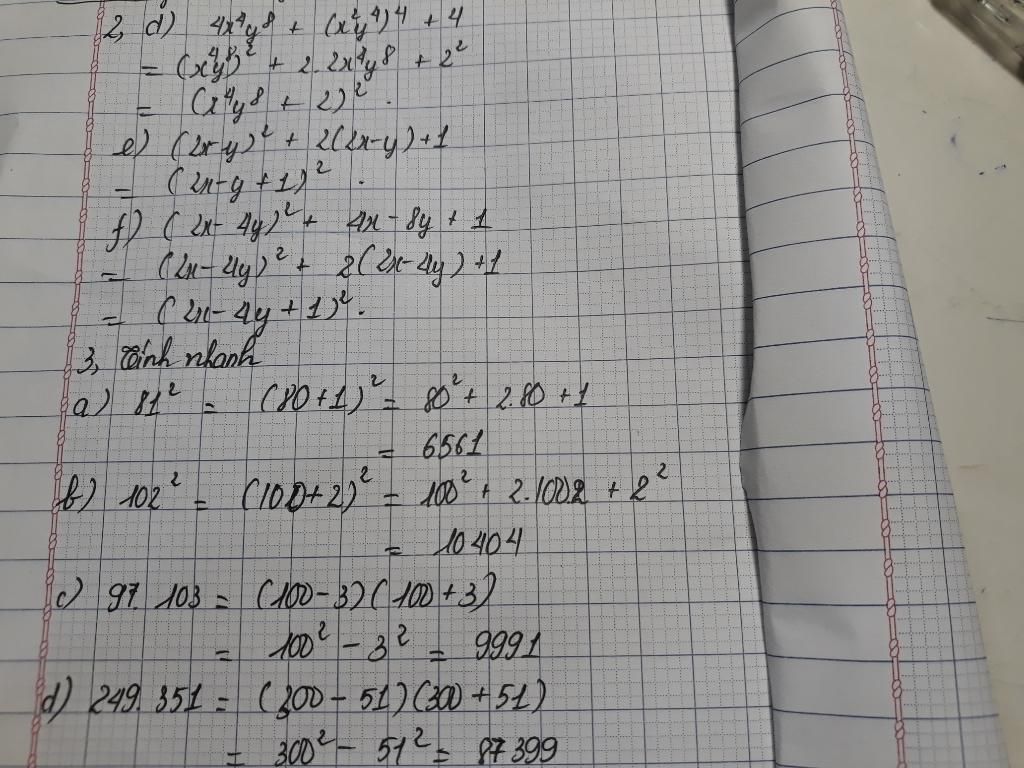 2, d) 4x⁴y⁸ + (x²y⁴)⁴ + 4
= (x⁴y⁸)² + 2.2x⁴y⁸ + 2²
= (x⁴y⁸ + 2)².
e) (2x-y)² + 2(2x-y)+1
= (2x-y+1)².
f) (2x-4y)² + 4x-8y+1
= (2x-4y)² + 2(2x-4y)+1
= (2x-4y+1)².
3, Tính nhanh
a) 81² = (80+1)² = 80² + 2.80+1
= 6561
b) 102² = (100+2)² = 100² + 2.1002 + 2²
= 10404
c) 97.103 = (100-3)(100+3)
= 100² - 3² = 9991
d) 249.351 = (300-51)(300+51)
= 300² - 51² = 87399